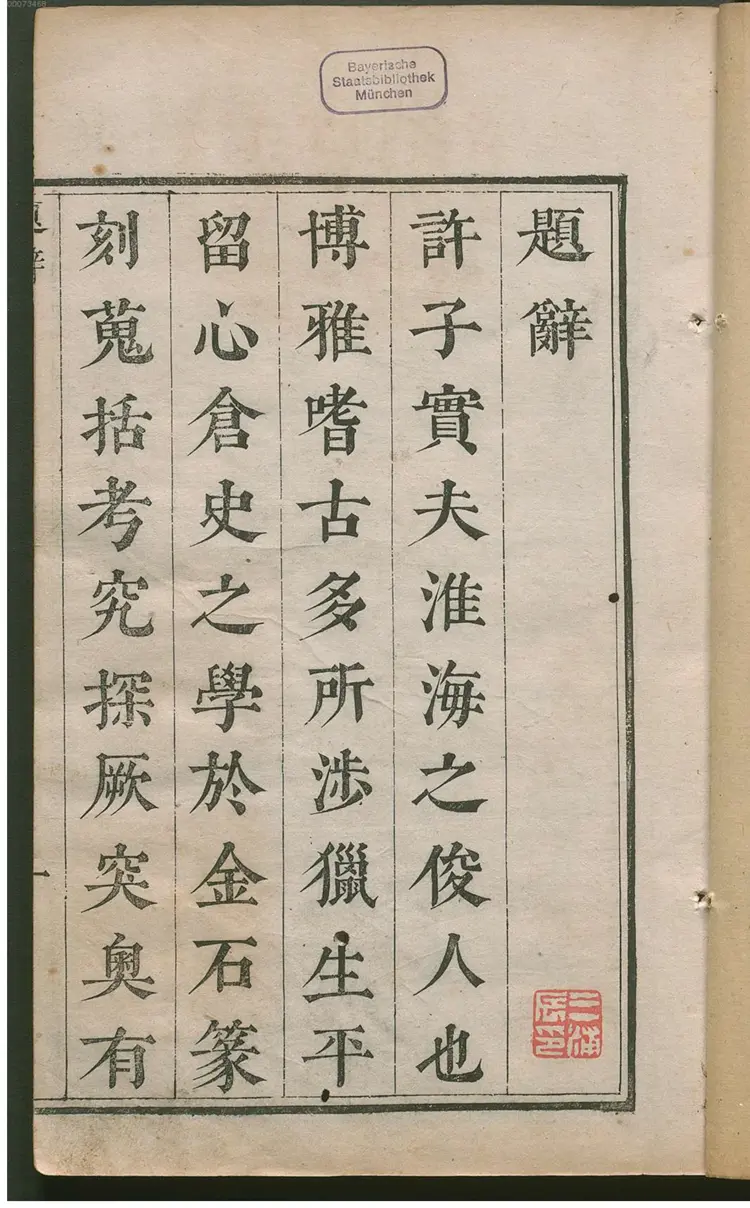 00073468
Bayerische
Staatsbibliothek
München
題辭
許子實夫淮海之俊人也
博雅嗜古多所涉獵生平
留心倉史之學於金石篆
刻蒐括考究探厥突奧有
題辭
一